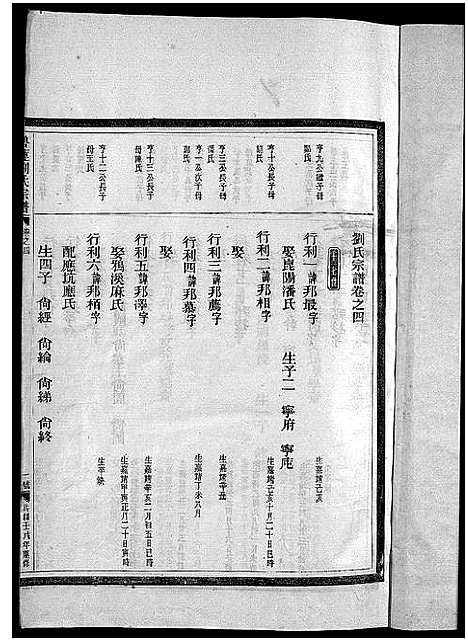 劉氏宗譜卷之四
亨九公繼子母
行利一諱邦最字
生嘉靖己亥
娶崑陽潘氏
生子二 寧府 寧庇
亨十公長子母
氏
行利二諱邦相字
生嘉靖乙亥十月二十日巳時
娶
亨三公長子母
氏
行利三諱邦薦字
生嘉靖辛丑
娶
亨一公次子母
氏
行利四諱邦慕字
生嘉靖丁未八月
娶
亨十三公長子母陳氏
行利五諱邦澤字
生嘉靖辛亥二月初五日巳時
娶鴉溪麻氏
生嘉靖甲寅正月二十日寅時
亨十二公長子
母王氏
行利六諱邦桶字
生卒缺
配應坑應氏
生四子 尙經 尙綸 尙綈 尙終